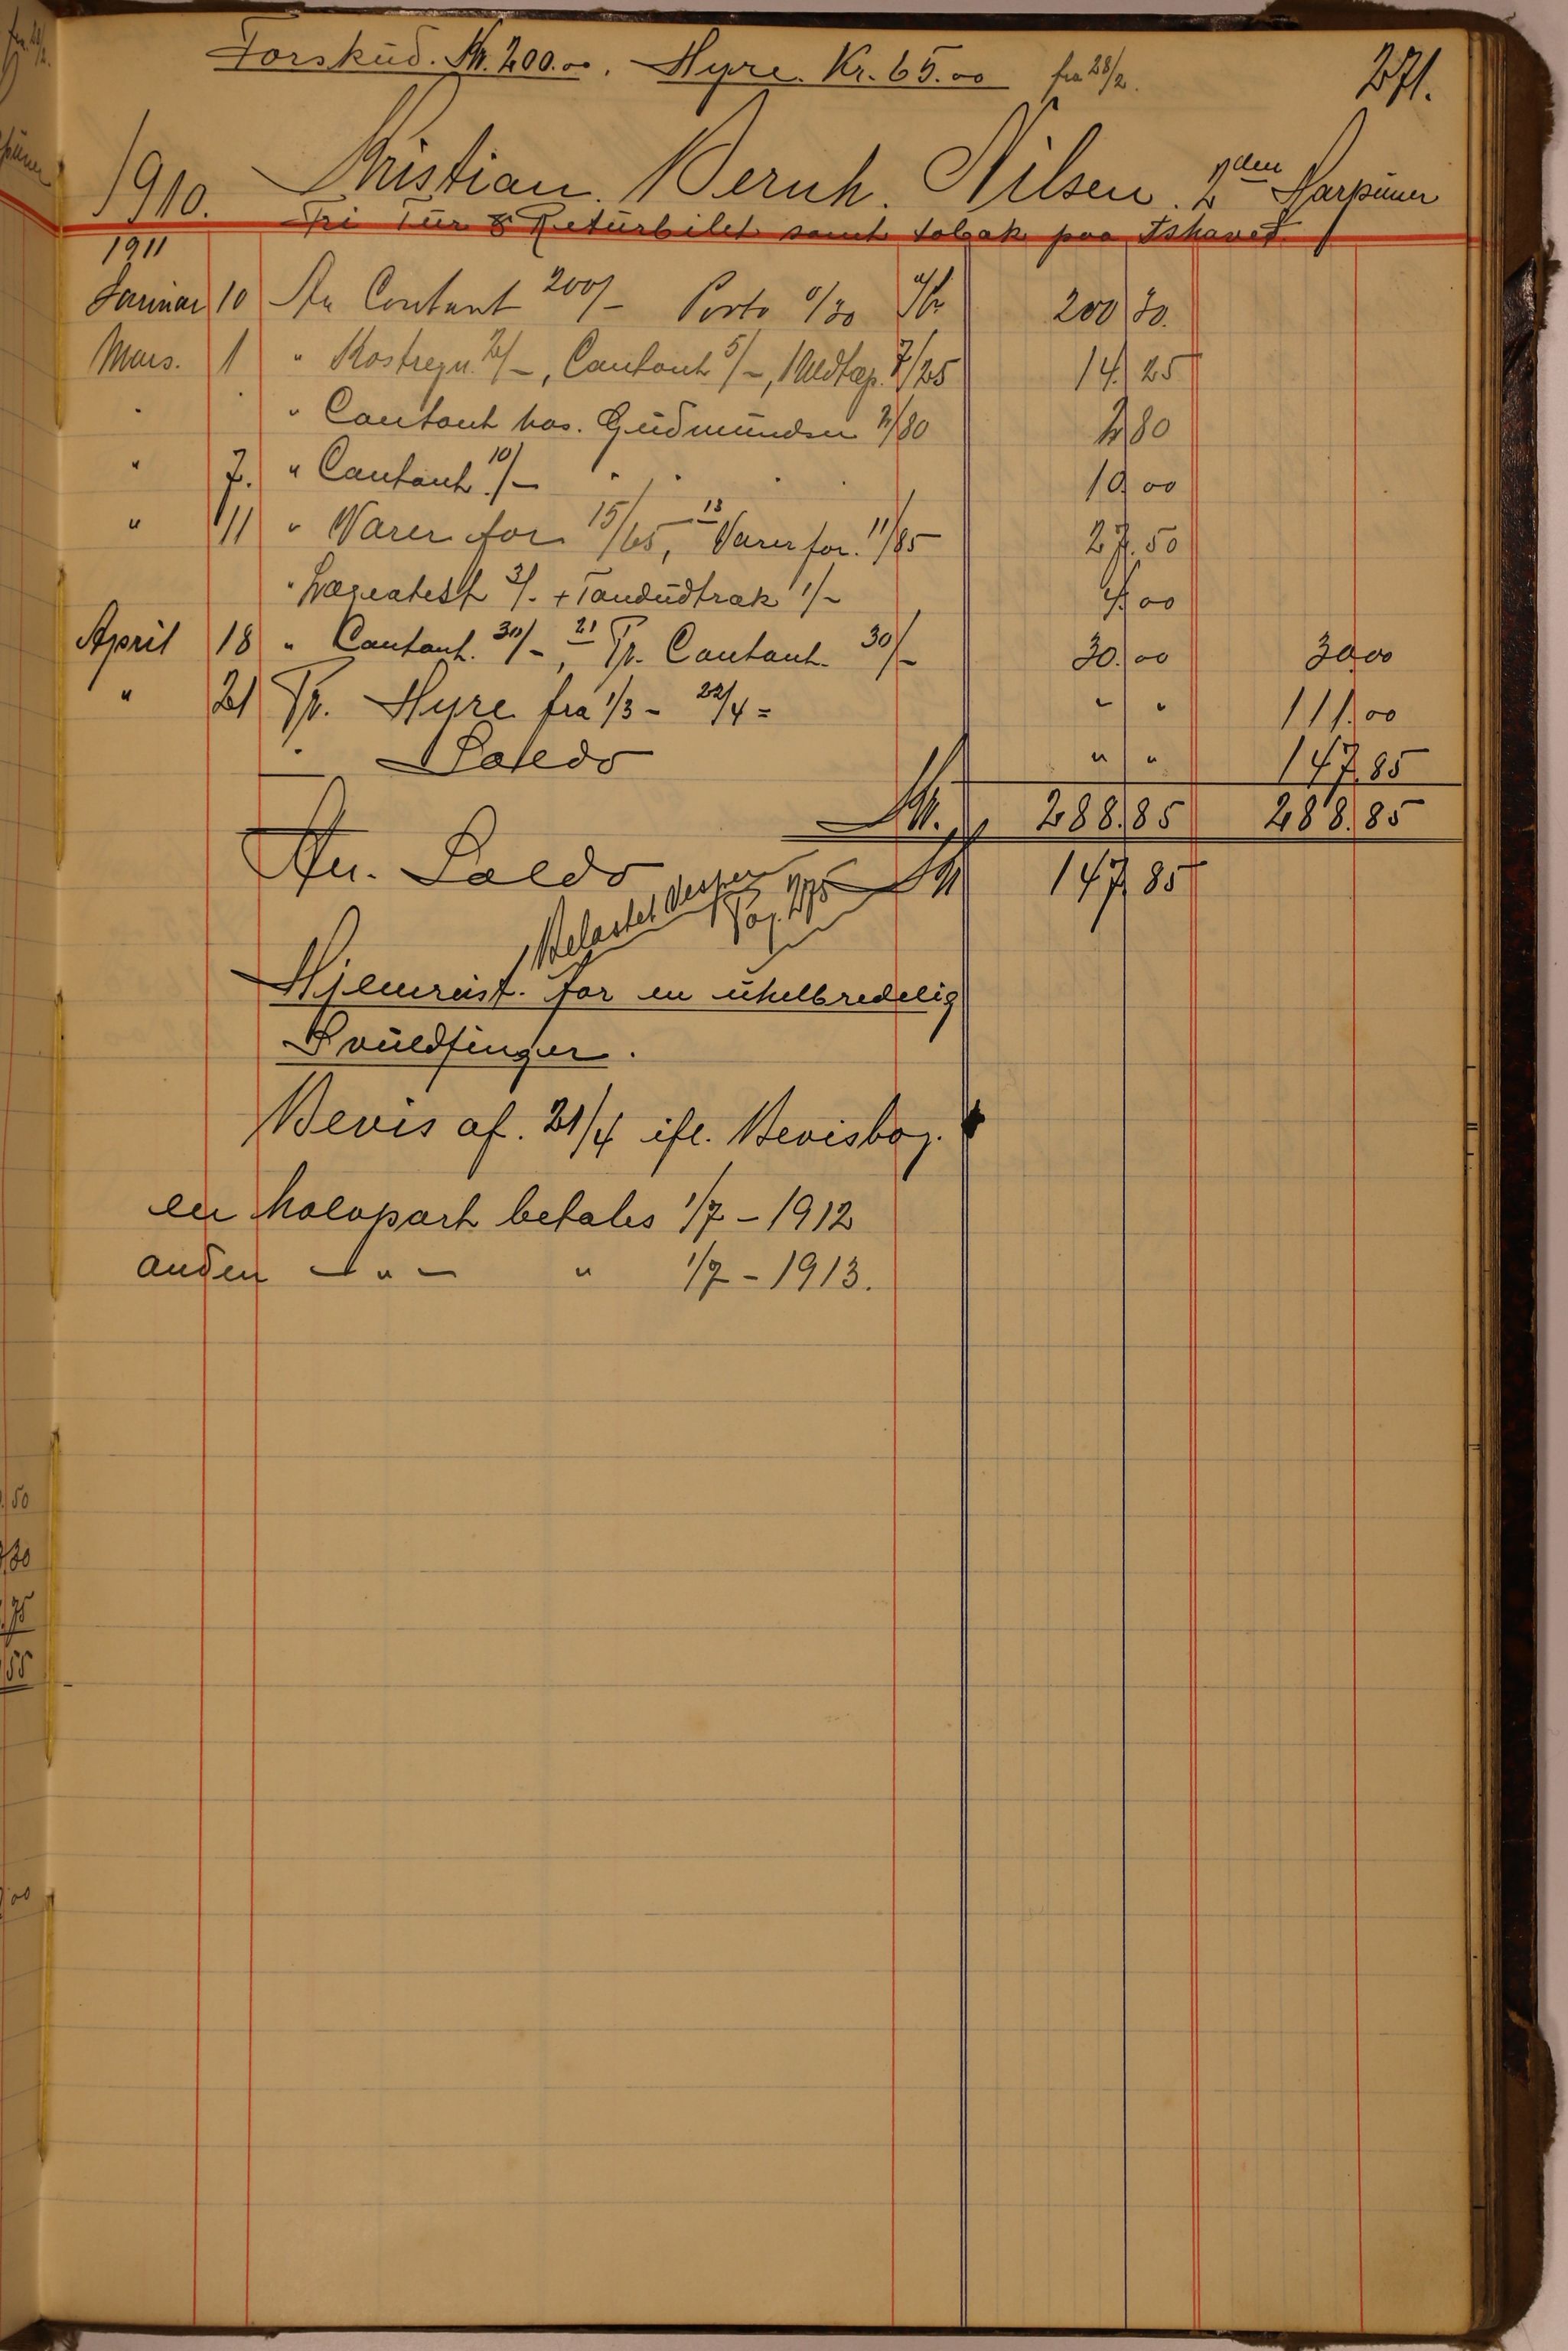 Forskud. Kr. 200.00. Hyre. Kr. 65.00 fra 28/2. 271.
1910. Kristian. Bernh. Nilsen. 2den Harpuner
Fri Tur & Returbilet samt tobak paa Ishavet
1911
Januar 10 An Contant 200/- Porto 0/30 Kr 200 30.
Mars. 1 " Kostregn. 2/-, Contant 5/-, 7/25 14. 25
" " Contant hos. Gudmundsen 2/80 2 80
" 7. " Contant. 10/- " " " 10 00
" 11 " Varer for 15/65, 13 Varer for. 11/85 27. 50
" Lægeatest 3/- + Tandudtræk 1/- 4. 00
April 18 " Contant. 30/-, 21 Pr. Contant. 30/- 30. 00 30 00
" 21 Pr. Hyre fra 1/3 - 22/4 = " " 111. 00
" Saldo " " 147. 85
Kr. 288. 85 288. 85
An. Saldo Kr 147. 85
Belastet Pag. 275
Hjemreist. for en uhelbredelig
Svuldfinger.
Bevis af. 21/4 ifl. Bevisbog.
en halvpart betales 1/7 - 1912
anden - " - " 1/7 - 1913.
50
30
75
55
00